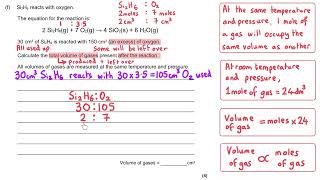 (f) Si₂H₆ reacts with oxygen.
The equation for the reaction is:
1 : 3.5
2 Si₂H₆(g) + 7 O₂(g) → 4 SiO₂(s) + 6 H₂O(g)
Si₂H₆ : O₂
2moles : 7 moles
2cm³ : 7 cm³
30 cm³ of Si₂H₆ is reacted with 150 cm³ (an excess) of oxygen.
All used up Some will be left over
Calculate the total volume of gases present after the reaction.
↳ produced + left over
All volumes of gases are measured at the same temperature and pressure.
30cm³ Si₂H₆ reacts with 30 x 3.5 = 105cm³ O₂ used
Si₂H₆ : O₂
30 : 105
2 : 7
Volume of gases = cm³
(4)
At the same temperature
and pressure, 1 mole of
gas will occupy the
same volume as another
At room temperature
and pressure,
1 mole of gas = 24dm³
Volume of gas = moles x 24
Volume of gas ∝ moles of gas